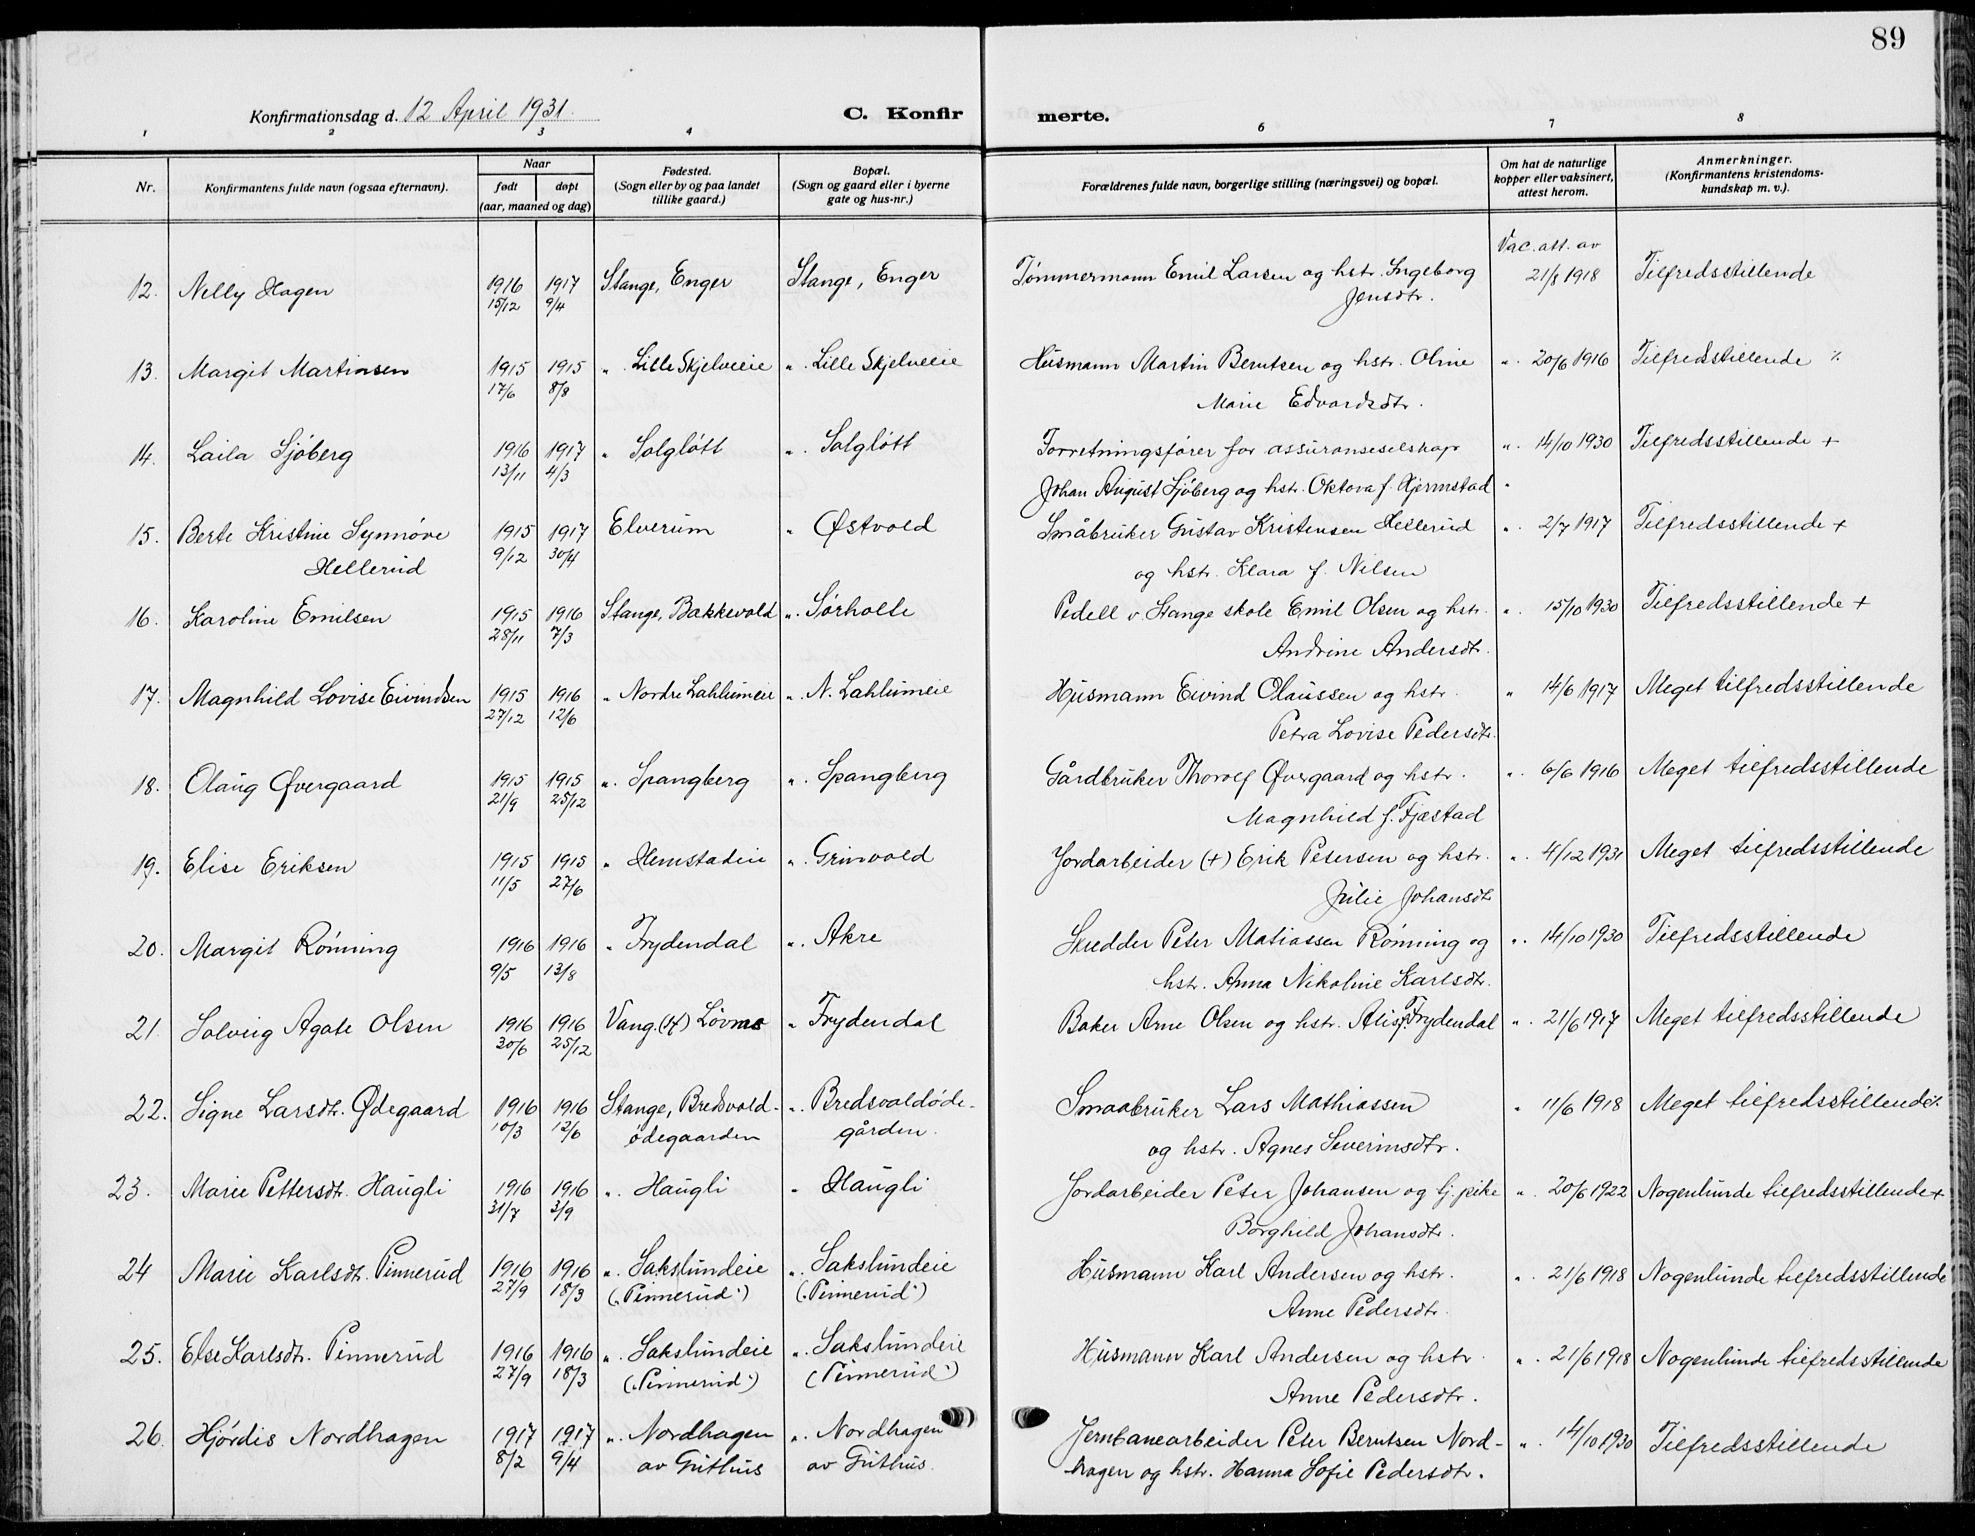 89
Konfirmationsdag d. 12 April 1931.
C. Konfirmerte.
1 2 3 4 6 7 8
Nr.
Konfirmantens fulde navn (ogsaa efternavn).
Naar
født
døpt
(aar, maaned og dag)
Fødested.
(Sogn eller by og paa landet
tillike gaard.)
Bopæl.
(Sogn og gaard eller i byerne
gate og hus-nr.)
Forældrenes fulde navn, borgerlige stilling (næringsvei) og bopæl.
Om hat de naturlige
kopper eller vaksinert,
attest herom.
Anmerkninger.
(Konfirmantens kristendoms-
kundskap m. v.).
Vac. att. av
12. Nelly Hagen 1916 1917 Stange, Enger Stange, Enger Tømmermann Emil Larsen og hstr. Ingeborg 21/8 1918 Tilfredsstillende
15/12 9/4 Jensdtr.
13. Margit Martinsen 1915 1915 " Lille Skjelveeie " Lille Skjelveeie Husmann Martin Berntsen og hstr. Oline " 20/6 1916 Tilfredsstillende %
17/6 8/8 Marie Edvardsdtr.
14. Laila Sjøberg 1916 1917 " Solgløtt " Solgløtt Forretningsfører for assuranseselskap " 14/10 1930 Tilfredsstillende +
13/11 4/3 Johan August Sjøberg og hstr. Oktova f. Gjermstad "
15. Berte Kristine Synnøve 1915 1917 Elverum " Østvold Småbruker Gustav Kristensen Hellerud " 2/7 1917 Tilfredsstillende +
Hellerud 9/12 30/4 og hstr. Klara f. Nilsen
16. Karoline Emilsen 1915 1916 Stange, Bakkevold " Sørholte Pedell v. Stange skole Emil Olsen og hstr. " 15/10 1930 Tilfredsstillende +
28/11 7/3 Andrine Andersdtr.
17. Magnhild Lovise Eivindsen 1915 1916 " Nordre Lahlumeie " N. Lahlumeie Husmann Eivind Olaussen og hstr. " 14/6 1917 Meget tilfredsstillende
27/12 12/6 Petra Lovise Pedersdtr.
18. Olaug Øvergaard 1915 1915 " Spangberg " Spangberg Gårdbruker Thorolf Øvergaard og hstr. " 6/6 1916 Meget tilfredsstillende
21/9 25/12 Magnhild f. Fjæstad
19. Elise Eriksen 1915 1915 " Hemstadeie " Grinvold Jordarbeider (+) Erik Petersen og hstr. " 4/12 1931 Meget tilfredsstillende
11/5 27/6 Julie Johansdtr
20. Margit Rønning 1916 1916 " Frydendal " Akre Skredder Peter Matiassen Rønning og " 14/10 1930 Tilfredsstillende
9/5 13/8 hstr. Anna Nikoline Karlsdtr.
21. Solveig Agate Olsen 1916 1916 Vang.(H) Løvnes " Frydendal Baker Arne Olsen og hstr. Alis f. Frydendal " 21/6 1917 Meget tilfredsstillende
30/6 25/12
22. Signe Larsdtr. Ødegaard 1916 1916 Stange, Bredsvold- " Bredsvoldøde- Smaabruker Lars Mathiassen " 11/6 1918 Meget tilfredsstillende %
10/3 12/6 ødegaarden gården. og hstr. Agnes Severinsdtr.
23. Marie Pettersdtr. Haugli 1916 1916 " Haugli " Haugli Jordarbeider Peter Johansen og Gj. pike " 20/6 1922 Nogenlunde tilfredsstillende +
31/7 3/9 Borghild Johansdtr.
24 Marie Karlsdtr. Pinnerud 1916 1916 " Sakslundeie " Sakslundeie Husmann Karl Andersen og hstr. " 21/6 1918 Nogenlunde tilfredsstillende
27/9 18/3 ("Pinnerud") ("Pinnerud") Anne Pedersdtr.
25. Else Karlsdtr. Pinnerud 1916 1916 " Sakslundeie " Sakslundeie Husmann Karl Andersen og hstr. " 21/6 1918 Nogenlunde tilfredsstillende
27/9 18/3 ("Pinnerud") ("Pinnerud") Anne Pedersdtr.
26. Hjørdis Nordhagen 1917 1917 " Nordhagen " Nordhagen Jernbanearbeider Peter Berntsen Nord- " 14/10 1930 Tilfredsstillende
8/2 9/4 av Guthus av Guthus. hagen og hstr. Hanna Sofie Pedersdtr.